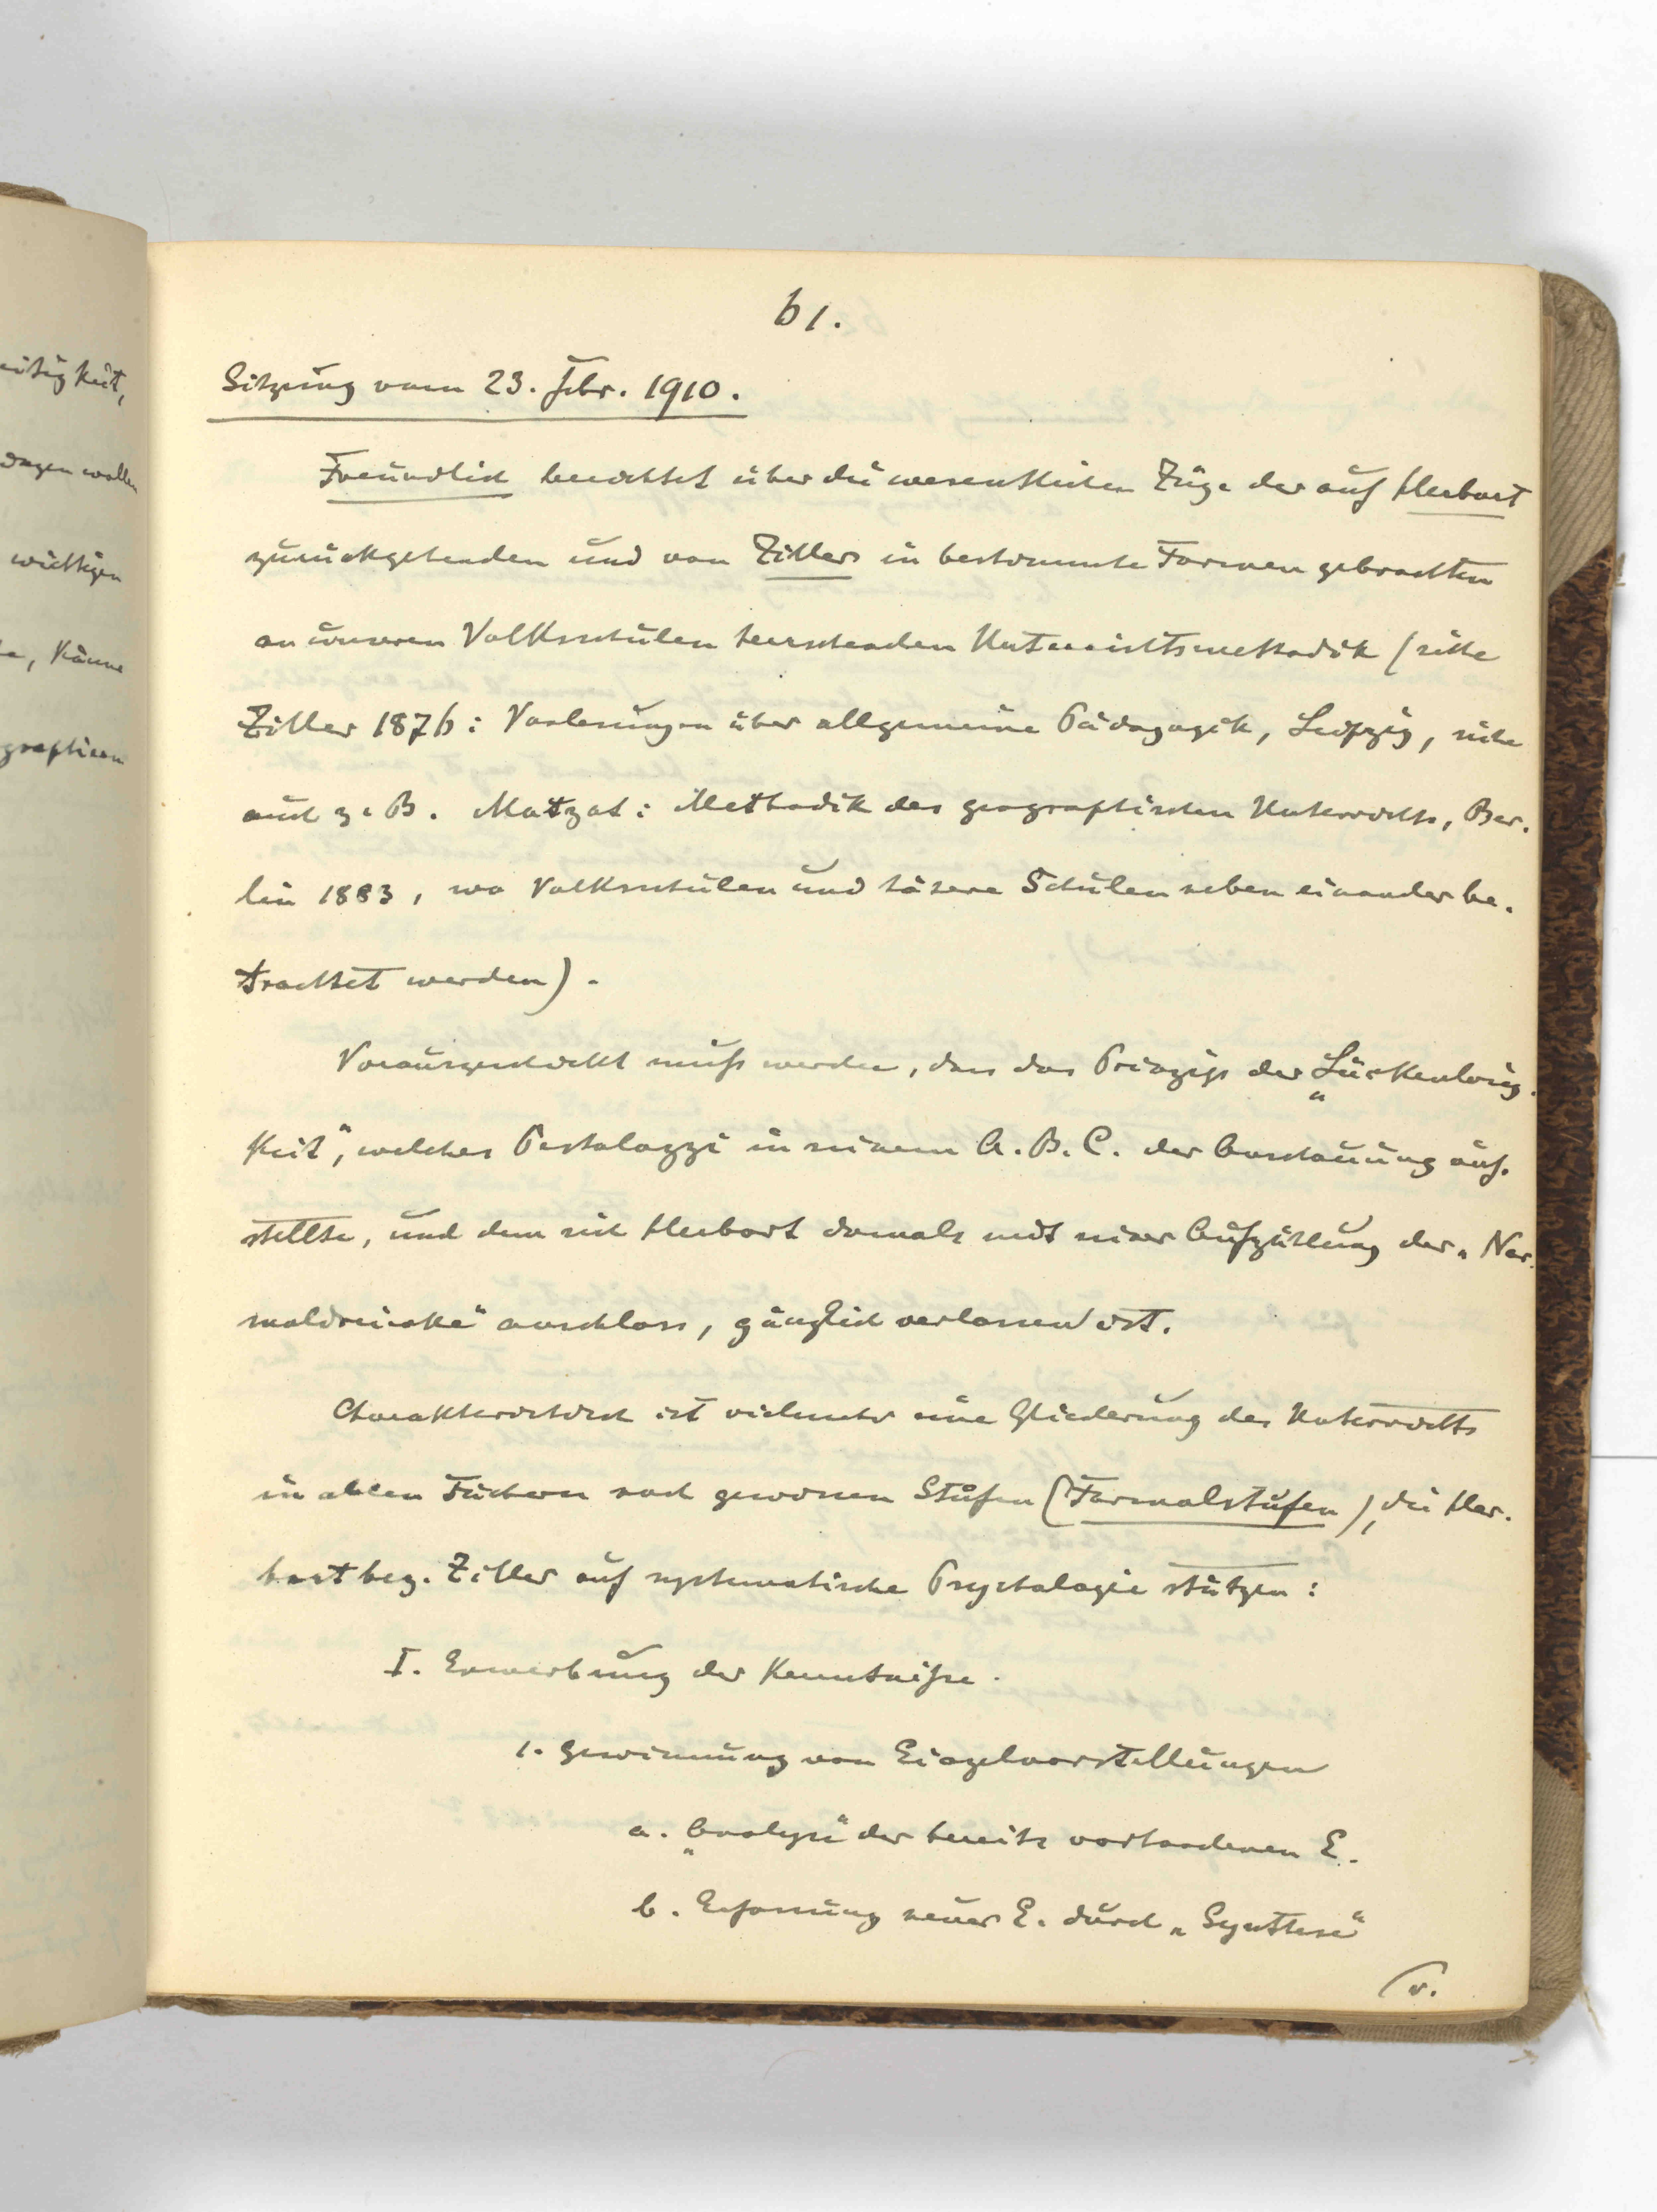 eitigkeit,
dagen wollen
wichtigen
Känne
graphieen
61.
Sitzung vom 23. Febr. 1910.
Freundlich berichtet über die wesentlichen Züge der auf Herbart
zurückgehenden und von Ziller in bestimmte Formen gebrachten
an unseren Volksschulen herrschenden Unterrichtsmethodik (siehe
Ziller 1876: Vorlesungen über allgemeine Pädagogik, Leipzig, siehe
auch z. B. Matzat: Methodik des geographischen Unterrichts, Ber-
lin 1883, wo Volksschulen und höhere Schulen neben einander be-
trachtet werden).
Vorausgeschickt muß werden, dass das Prinzip der „Lückenlosig-
keit“, welches Pestalozzi in seinem A. B. C. der Anschauung auf-
stellte, und dem sich Herbart damals mit seiner Aufzählung der „Nor-
maldreiecke“ anschloss, gänzlich verlassen ist.
Charakteristisch ist vielmehr eine Gliederung des Unterrichts
in allen Fächern nach gewissen Stufen (Formalstufen), die Her-
bart bez. Ziller auf systematische Psychologie stützen:
I. Erwerbung der Kenntniße.
1. Gewinnung von Einzelvorstellungen
a. „Analyse“ der bereits vorhandenen E.
b. Erfassung neuer E. durch „Synthese“
(v.